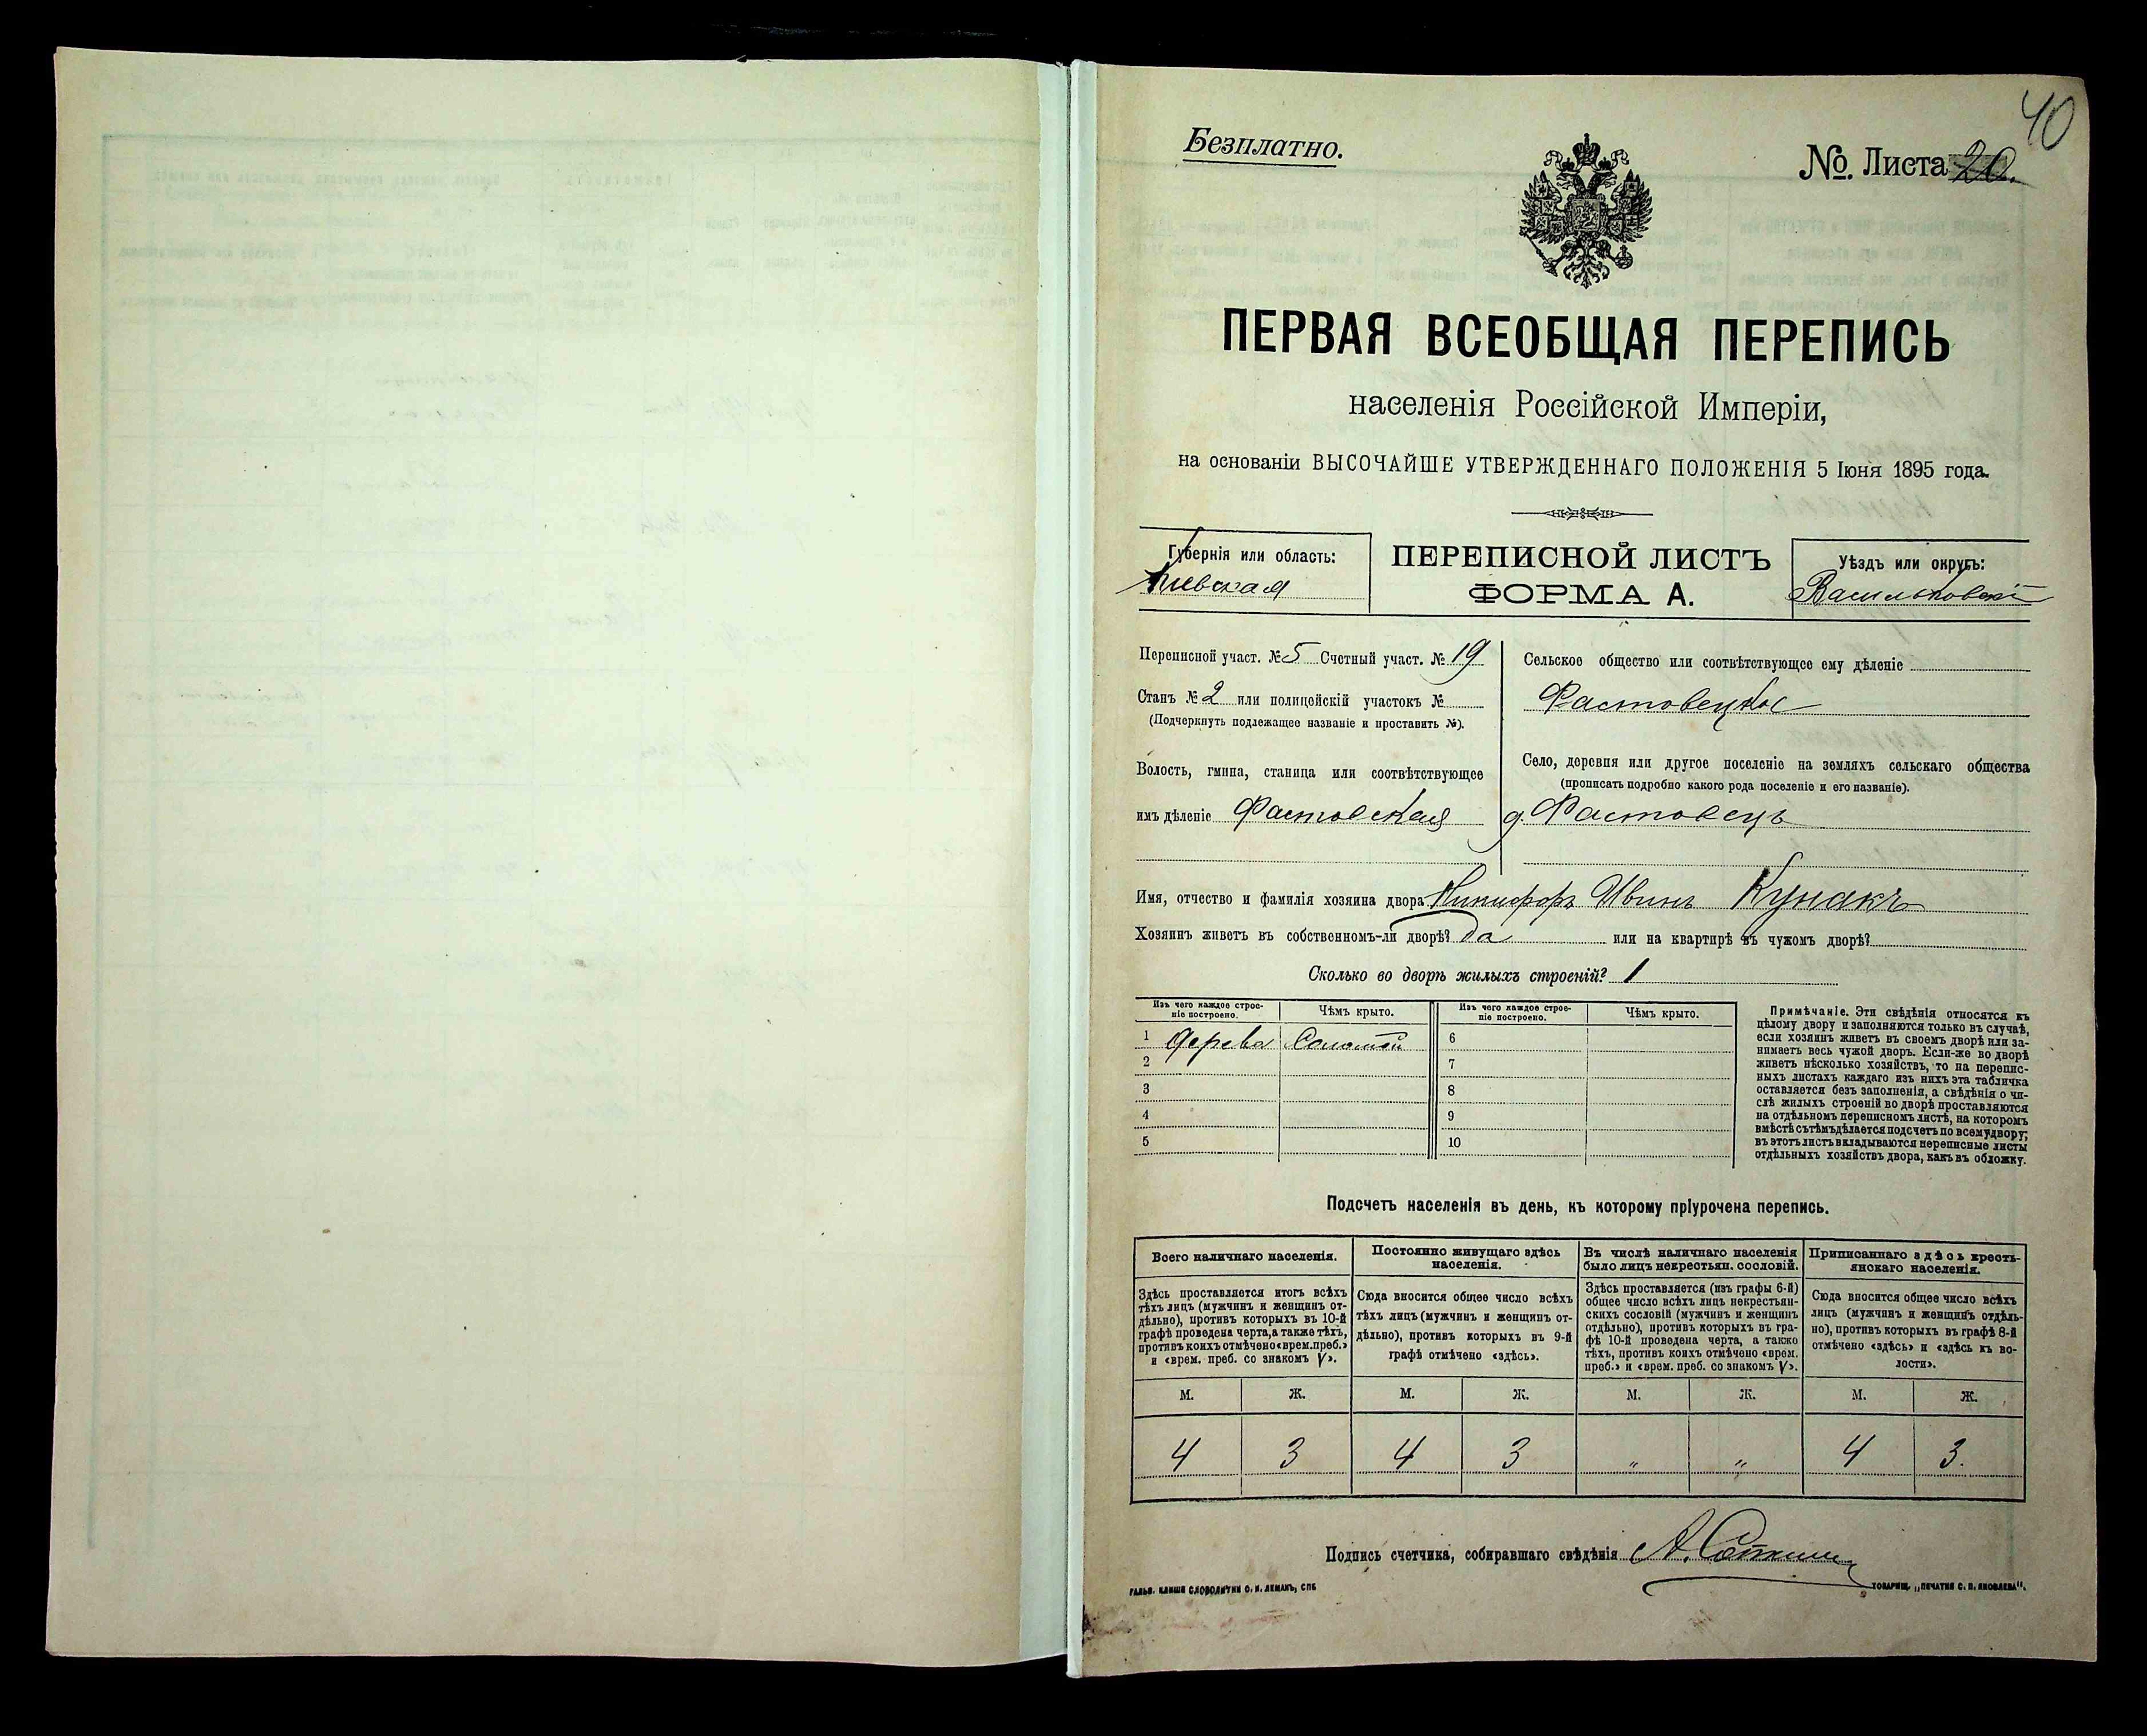 40
Безплатно.
№. Листа 20.
ПЕРВАЯ ВСЕОБЩАЯ ПЕРЕПИСЬ
населенія Россійской Имперіи,
на основаніи ВЫСОЧАЙШЕ УТВЕРЖДЕННАГО ПОЛОЖЕНІЯ 5 Іюня 1895 года.
Губернія или область:
Кіевская
ПЕРЕПИСНОЙ ЛИСТЪ
ФОРМА А.
Уѣздъ или округъ:
Васильковскій
Переписной участ. № 5 Счетный участ. № 19
Станъ № 2 или полицейскій участокъ №
(Подчеркнуть подлежащее названіе и проставить №).
Волость, гмина, станица или соотвѣтствующее
имъ дѣленіе Фастовская
Сельское общество или соотвѣтствующее ему дѣленіе
Фастовецкое
Село, деревня или другое поселеніе на земляхъ сельскаго общества
(прописать подробно какого рода поселеніе и его названіе).
д. Фастовецъ
Имя, отчество и фамилія хозяина двора Никифоръ Ивинъ Кунакъ
Хозяинъ живетъ въ собственномъ-ли дворѣ? да или на квартирѣ въ чужомъ дворѣ?
Сколько во дворѣ жилыхъ строеній? 1
Изъ чего каждое строе-
ніе построено.
Чѣмъ крыто.
Изъ чего каждое строе-
ніе построено.
Чѣмъ крыто.
1 Дерева Соломой 6
2 7
3 8
4 9
5 10
Примѣчаніе. Эти свѣдѣнія относятся къ
цѣлому двору и заполняются только въ случаѣ,
если хозяинъ живетъ въ своемъ дворѣ или за-
нимаетъ весь чужой дворъ. Если-же во дворѣ
живетъ нѣсколько хозяйствъ, то на перепис-
ныхъ листахъ каждаго изъ нихъ эта табличка
оставляется безъ заполненія, а свѣдѣнія о чи-
слѣ жилыхъ строеній во дворѣ проставляются
на отдѣльномъ переписномъ листѣ, на которомъ
вмѣстѣ съ тѣмъ дѣлается подсчетъ по всему двору;
въ этотъ листъ вкладываются переписные листы
отдѣльныхъ хозяйствъ двора, какъ въ обложку.
Подсчетъ населенія въ день, къ которому пріурочена перепись.
Всего наличнаго населенія.
Постоянно живущаго здѣсь
населенія.
Въ числѣ наличнаго населенія
было лицъ некрестьян. сословій.
Приписаннаго здѣсь кресть-
янскаго населенія.
Здѣсь проставляется итогъ всѣхъ
тѣхъ лицъ (мужчинъ и женщинъ от-
дѣльно), противъ которыхъ въ 10-й
графѣ проведена черта, а также тѣхъ,
противъ коихъ отмѣчено «врем. преб.»
и «врем. преб. со знакомъ V».
Сюда вносится общее число всѣхъ
тѣхъ лицъ (мужчинъ и женщинъ от-
дѣльно), противъ которыхъ въ 9-й
графѣ отмѣчено «здѣсь».
Здѣсь проставляется (изъ графы 6-й)
общее число всѣхъ лицъ некрестьян-
скихъ сословій (мужчинъ и женщинъ
отдѣльно), противъ которыхъ въ гра-
фѣ 10-й проведена черта, а также
тѣхъ, противъ коихъ отмѣчено «врем.
преб.» и «врем. преб. со знакомъ V».
Сюда вносится общее число всѣхъ
лицъ (мужчинъ и женщинъ отдѣль-
но), противъ которыхъ въ графѣ 8-й
отмѣчено «здѣсь» и «здѣсь къ во-
лости».
М. Ж. М. Ж. М. Ж. М. Ж.
4 3 4 3 „ „ 4 3.
Подпись счетчика, собиравшаго свѣдѣнія А.
ГАЛЬВ. КЛИШЕ СЛОВОЛИТНИ О. И. ЛЕМАНЪ, СПБ
ТОВАРИЩ. „ПЕЧАТНЯ С. П. ЯКОВЛЕВА".